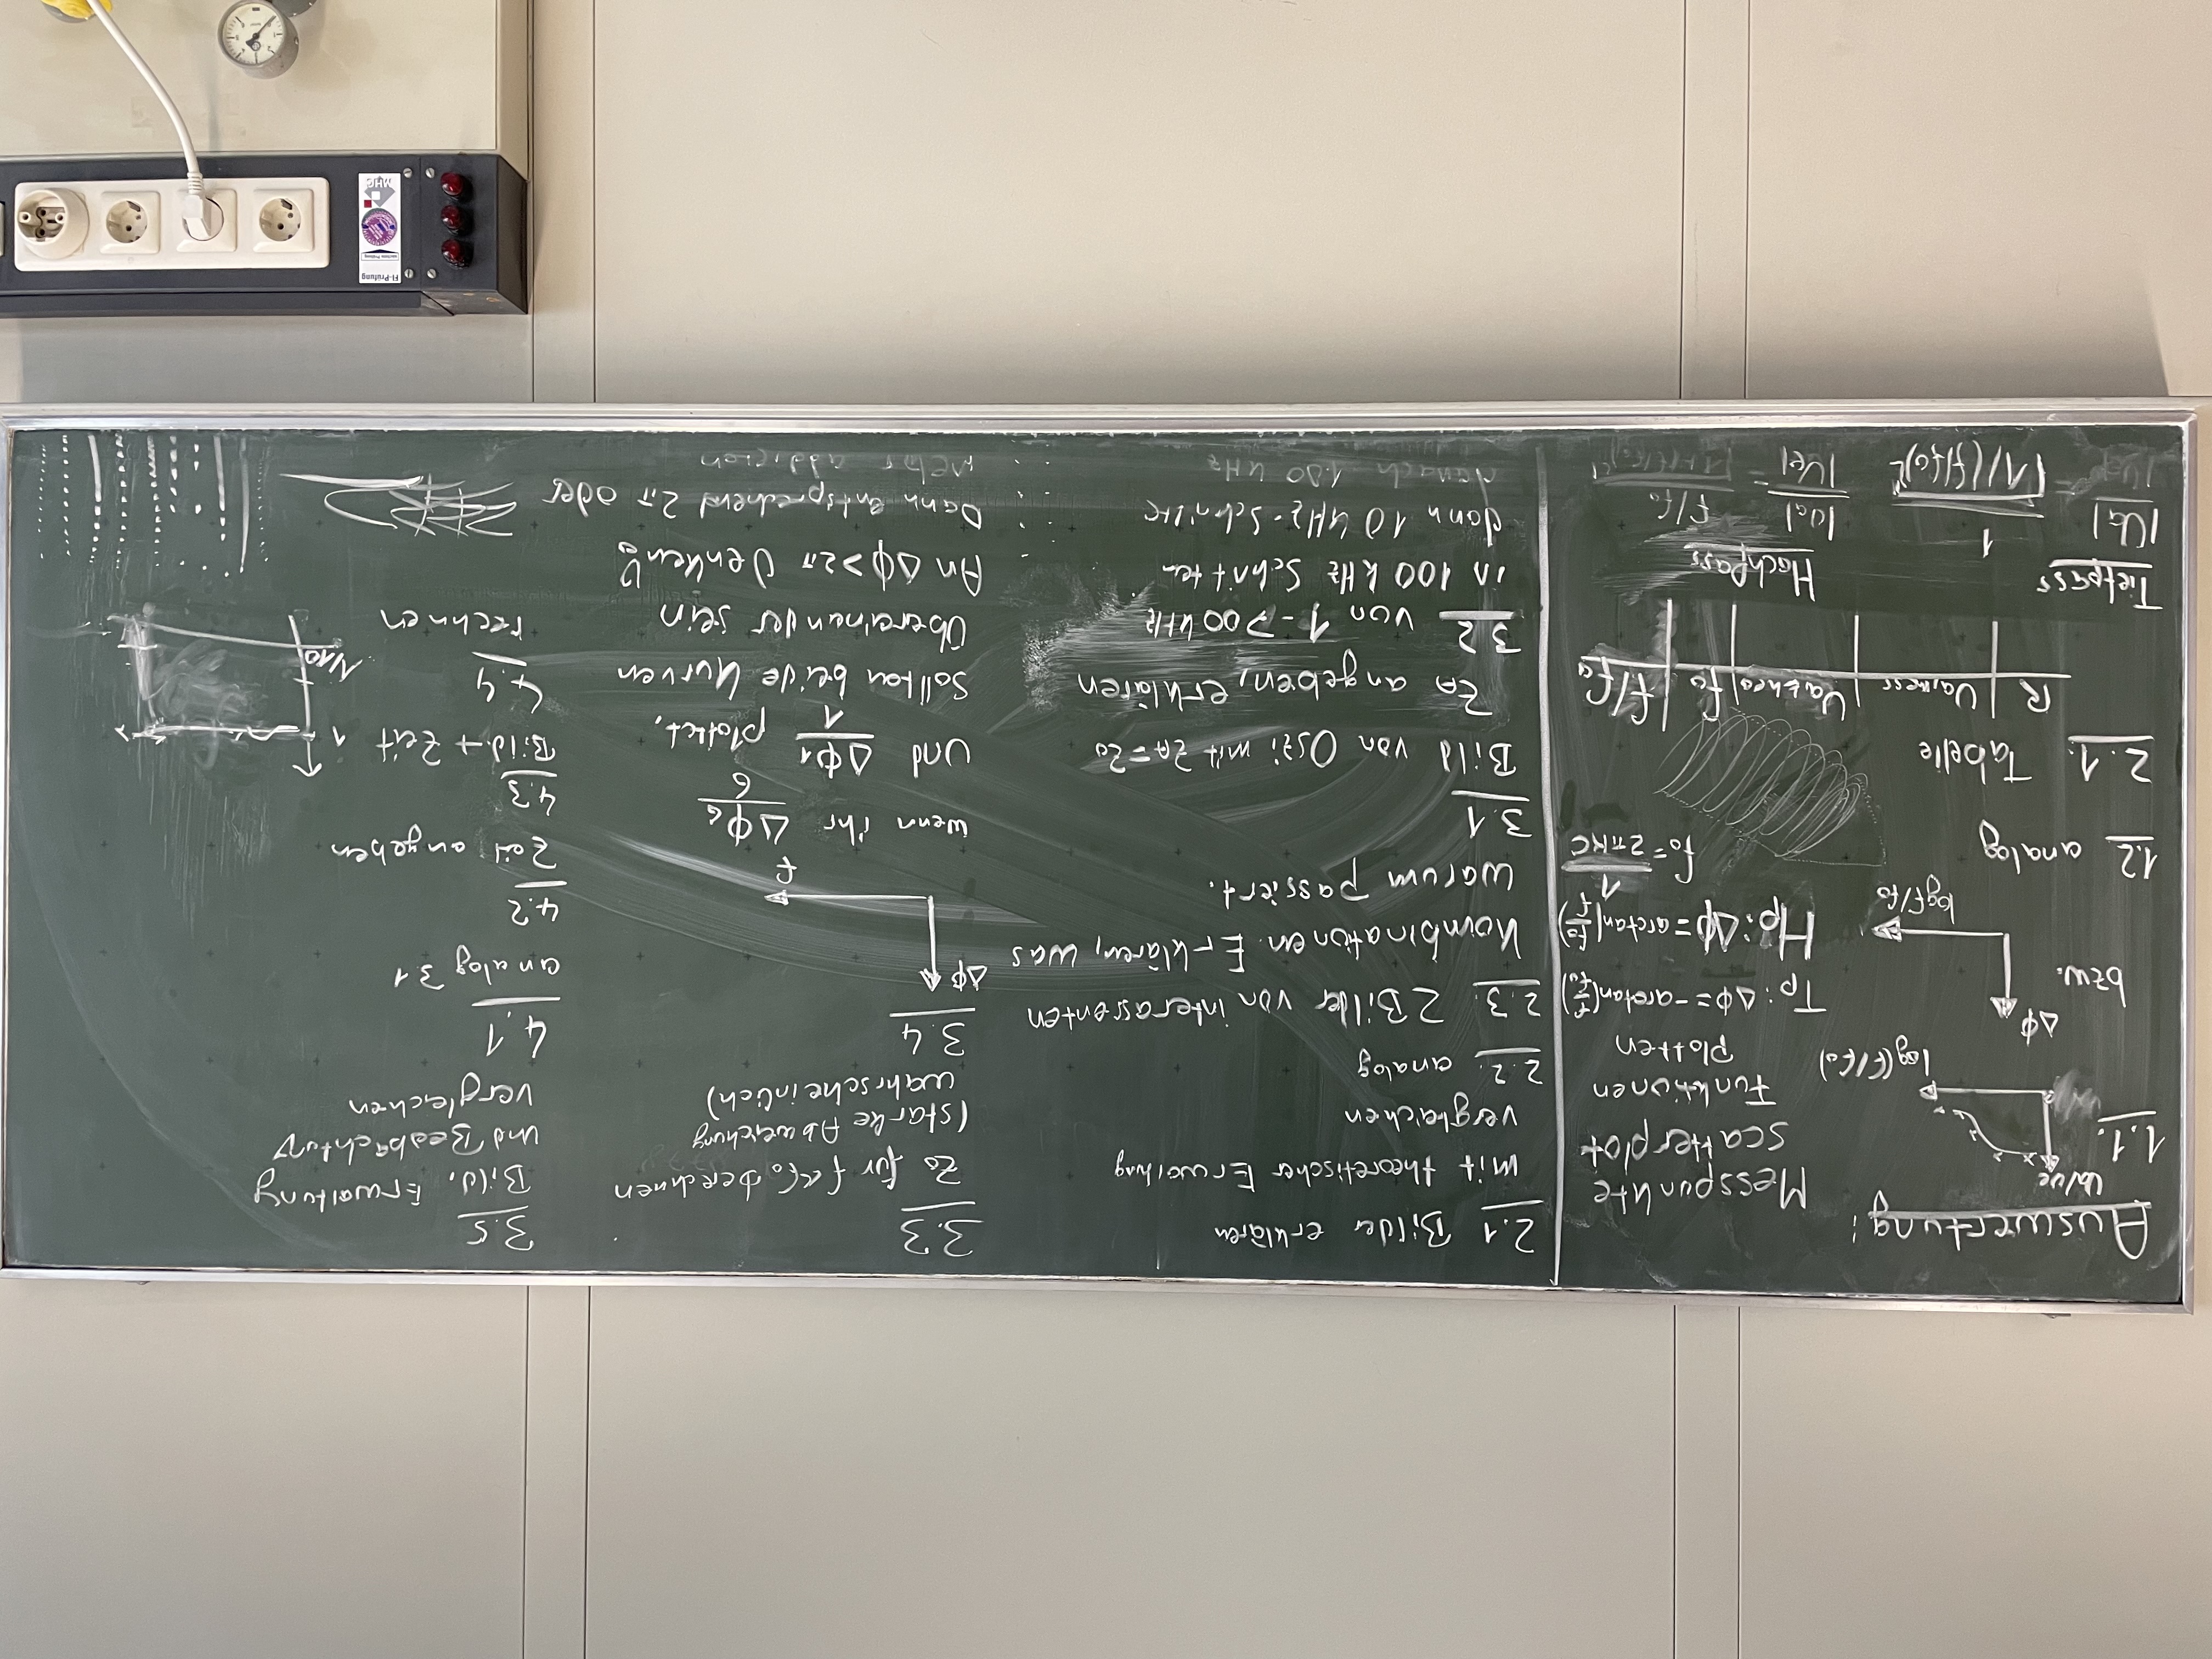 Auswertung:
1.1.
Ua/Ue
log(f/f₀)
Messpunkte
scatterplot
Funktionen
plotten
bzw.
Δϕ
log f/f₀
Tp: Δϕ = -arctan(f/f₀)
Hp: Δϕ = arctan(f₀/f)
f₀ = 1/2πRC
1.2 analog
2.1. Tabelle
R | Ua,mess | Ua,theo | f₀ | f/f₀
Tiefpass
|Ua|/|Ue| = 1/√1/(f/f₀)²
Hochpass
|Ua|/|Ue| = f/f₀
2.1 Bilder erklären
mit theoretischer Erwartung
vergleichen
2.2. analog
2.3. 2 Bilder von interassenten
Kombinationen. Erklären, was
warum passiert.
3.1
Bild von Oszi mit ZA = Z₀
ZA angeben, erklären
3.2 von 1-700 kHz
in 100 kHz Schritten
dann 10 kHz-Schritte
danach 100 kHz
3.3
Z₀ für f << f₀ berechnen
(starke Abweichung
wahrscheinlich)
3.4
Δϕ
f
wenn ihr Δϕ₆/6
und Δϕ₁/1 plottet,
sollten beide Kurven
Übereinander sein
An Δϕ > 2π Denken!
Dann entsprechend 2π oder
mehr addieren
3.5
Bild, Erwartung
und Beobachtung
vergleichen
4.1
analog 3.1
4.2
Zeit angeben
4.3
Bild → Zeit
1
1/10
4.4
rechnen
FI-Prüfung
MHG